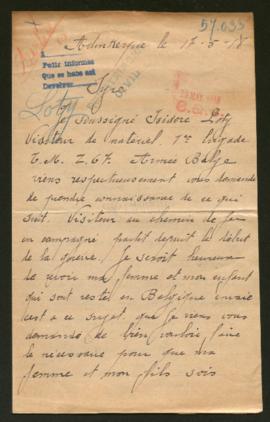 57.033
Adinkerque le 17-5-18
A
Pedir informes
Que se habe asi
Devolver
Syre
Loty
Je soussigné Isidore Loty
Visiteur de materiel, 1re brigade
T.M. Z.67. Armée Belge
viens respectueusement vous demander
de prendre connaissance de ce qui
suit. Visiteur au chemin de fer
en campagne partit depuit le début
de la guerre. Je seroit heureux
de revoir ma femme et mon enfant
qui sont restés en Belgique envaie
c'est a ce sujet que je viens vous
demandé de bien vouloir faire
le nécessaire pour que ma
femme et mon fils sois